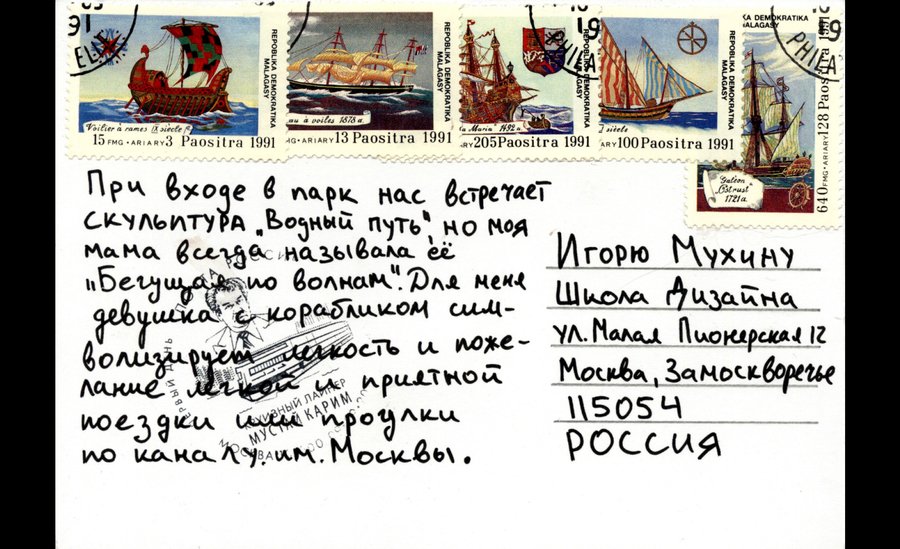 91
ELAT
Voilier à rames IX siècle
15 FMG • ARIARY 3 Paositra 1991
REPOBLIKA DEMOKRATIKA
MALAGASY
au à voiles 1878 a.
ARIARY 13 Paositra 1991
REPOBLIKA DEMOKRATIKA
MALAGASY
ta Maria" 1492 a.
ARIARY 205 Paositra 1991
PHILA
REPOBLIKA DEMOKRATIKA
MALAGASY
siècle
ARY 100 Paositra 1991
19
PHILA
KA DEMOKRATIKA
MALAGASY
Galion
"Ostrust"
1721 a.
640 FMG • ARIARY 128 Paositra 1991
При входе в парк нас встречает
скульптура „Водный путь", но моя
мама всегда называла её
„Бегущая по волнам". Для меня
девушка с корабликом сим-
волизирует легкость и поже-
лание легкой и приятной
поездки или прогулки
по каналу им. Москвы.
МУСТАЙ КАРИМ
Игорю Мухину
Школа Дизайна
ул. Малая Пионерская 12
Москва, Замоскворечье
115054
РОССИЯ